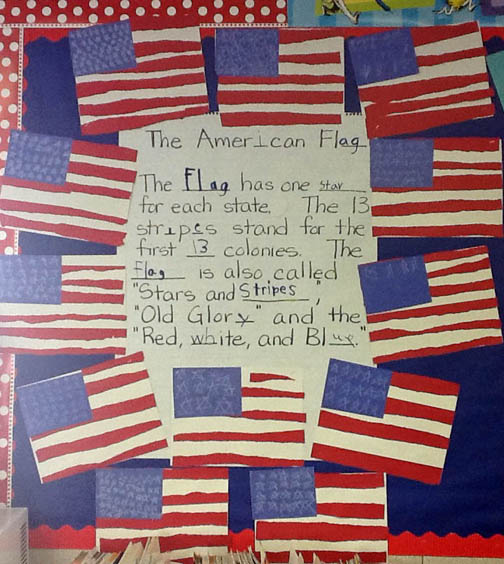 The American Flag
The Flag has one star
for each state. The 13
stripes stand for the
first 13 colonies. The
Flag is also called
"Stars and Stripes",
"Old Glory" and the
"Red, white, and Blue."